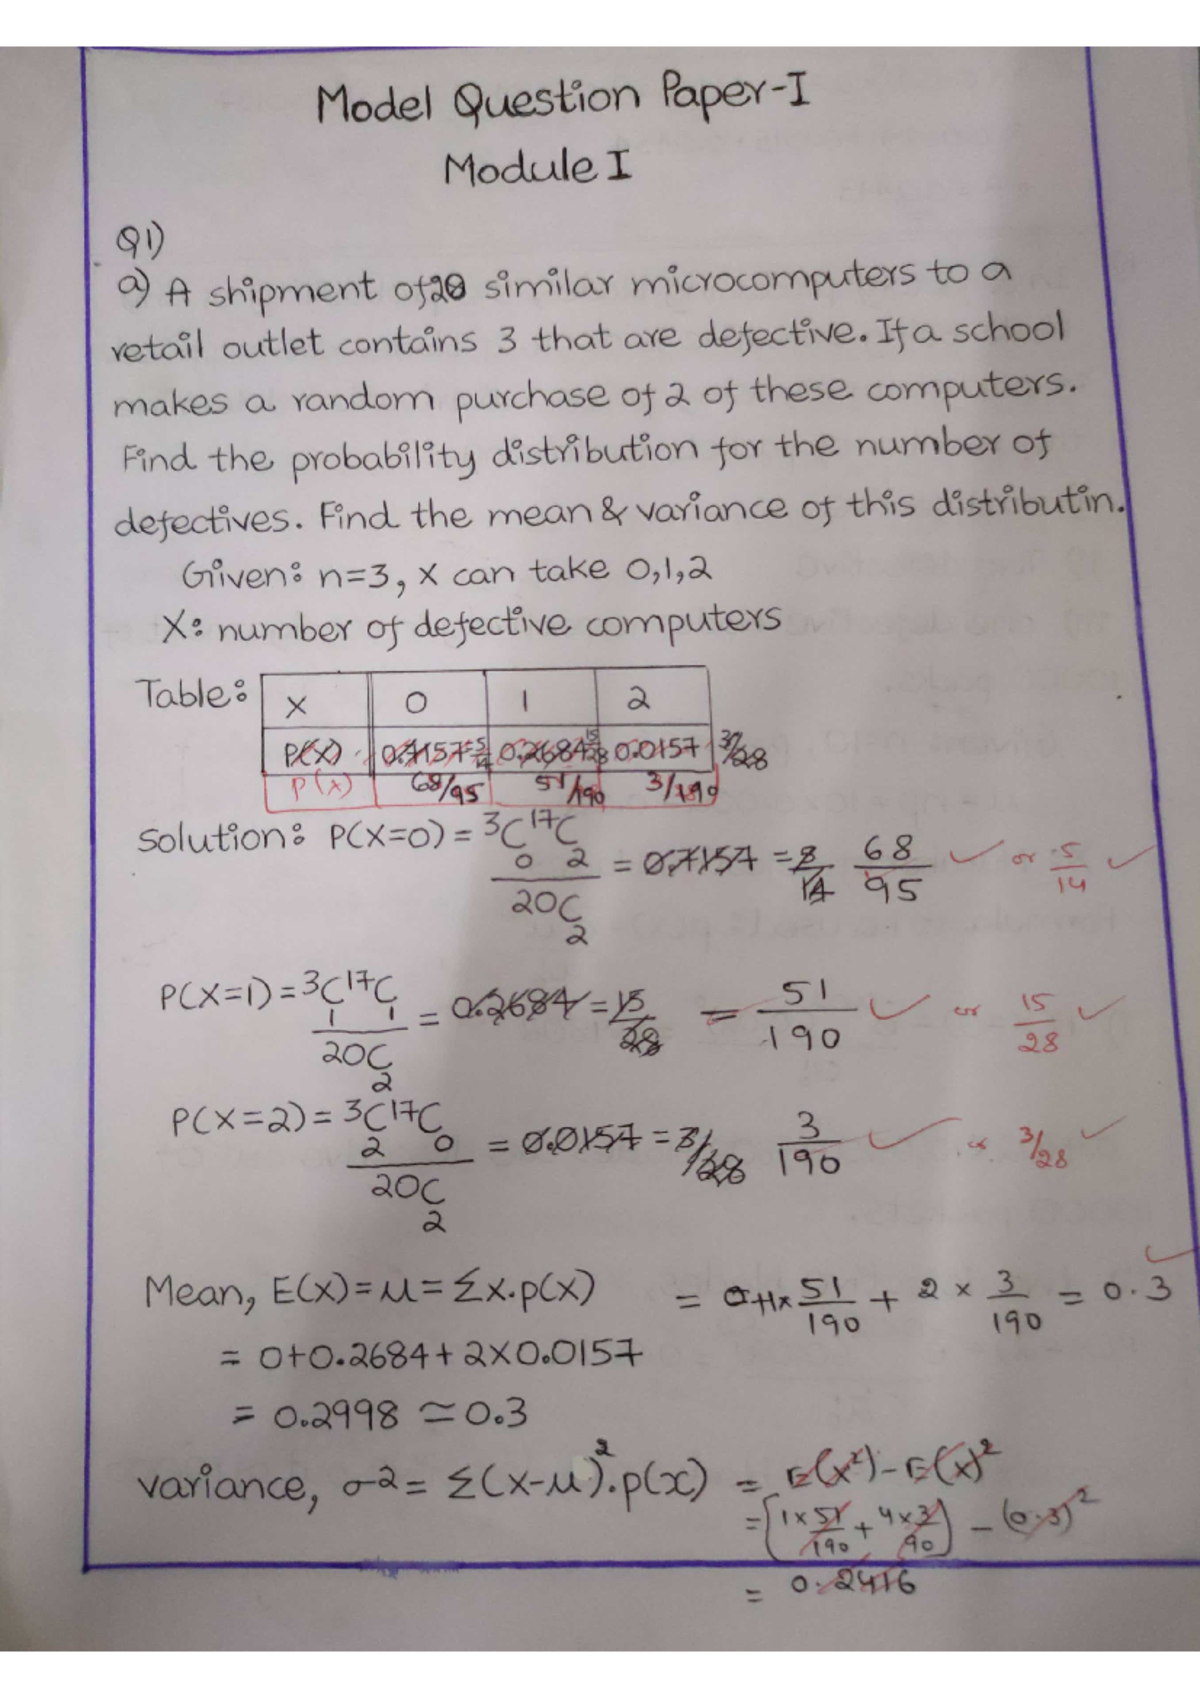 Model Question Paper-I
Module I
Q1)
a) A shipment of 20 similar microcomputers to a
retail outlet contains 3 that are defective. If a school
makes a random purchase of 2 of these computers.
Find the probability distribution for the number of
defectives. Find the mean & variance of this distributin.
Given: n=3, X can take 0,1,2
X: number of defective computers
Table: X 0 1 2
P(X) 0.7157=5/14 0.2684 15/28 0.0157 3/28
P(X) 68/95 51/190 3/190
Solution: P(X=0) = 3C0 17C2 / 20C2 = 0.7157 = 68/95 ✓ or 5/14 ✓
P(X=1) = 3C1 17C1 / 20C2 = 0.2684 = 15/28 = 51/190 ✓ or 15/28 ✓
P(X=2) = 3C2 17C0 / 20C2 = 0.0157 = 3/28 3/190 ✓ or 3/28 ✓
Mean, E(X) = μ = Σx.p(x) = 0+1× 51/190 + 2 × 3/190 = 0.3 ✓
= 0+0.2684+2×0.0157
= 0.2998 ≃ 0.3
variance, σ2 = Σ(x-μ)².p(x) = E(x²) - E(x)²
= [1×51/190 + 4×3/90] - (0.3)²
= 0.2416